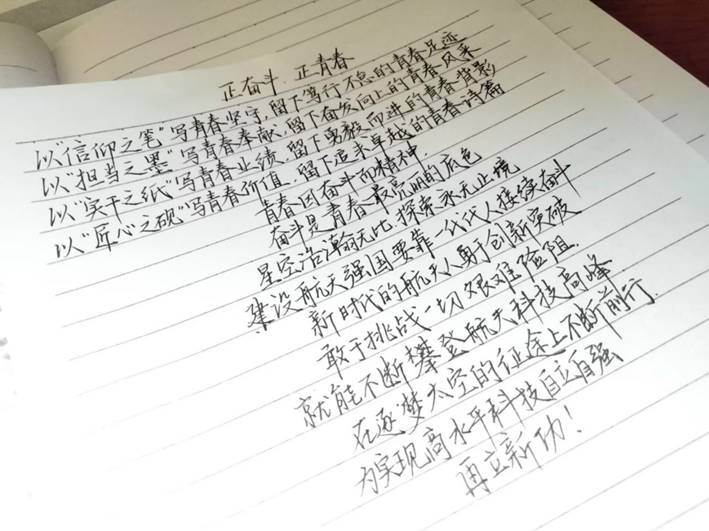 正奋斗 正青春
以"信仰之笔"写青春坚守,留下笃行不怠的青春足迹
以"担当之墨"写青春奉献,留下奋发向上的青春风采
以"实干之纸"写青春业绩,留下勇毅而进的青春背影
以"匠心之砚"写青春价值,留下追求卓越的青春诗篇
青春因奋斗而精神,
奋斗是青春最亮丽的底色
星空浩瀚无比,探索永无止境
建设航天强国要靠一代代人接续奋斗
新时代的航天人勇于创新突破
敢于挑战一切艰难险阻,
就能不断攀登航天科技高峰
在逐梦太空的征途上不断前行
为实现高水平科技自立自强
再立新功!